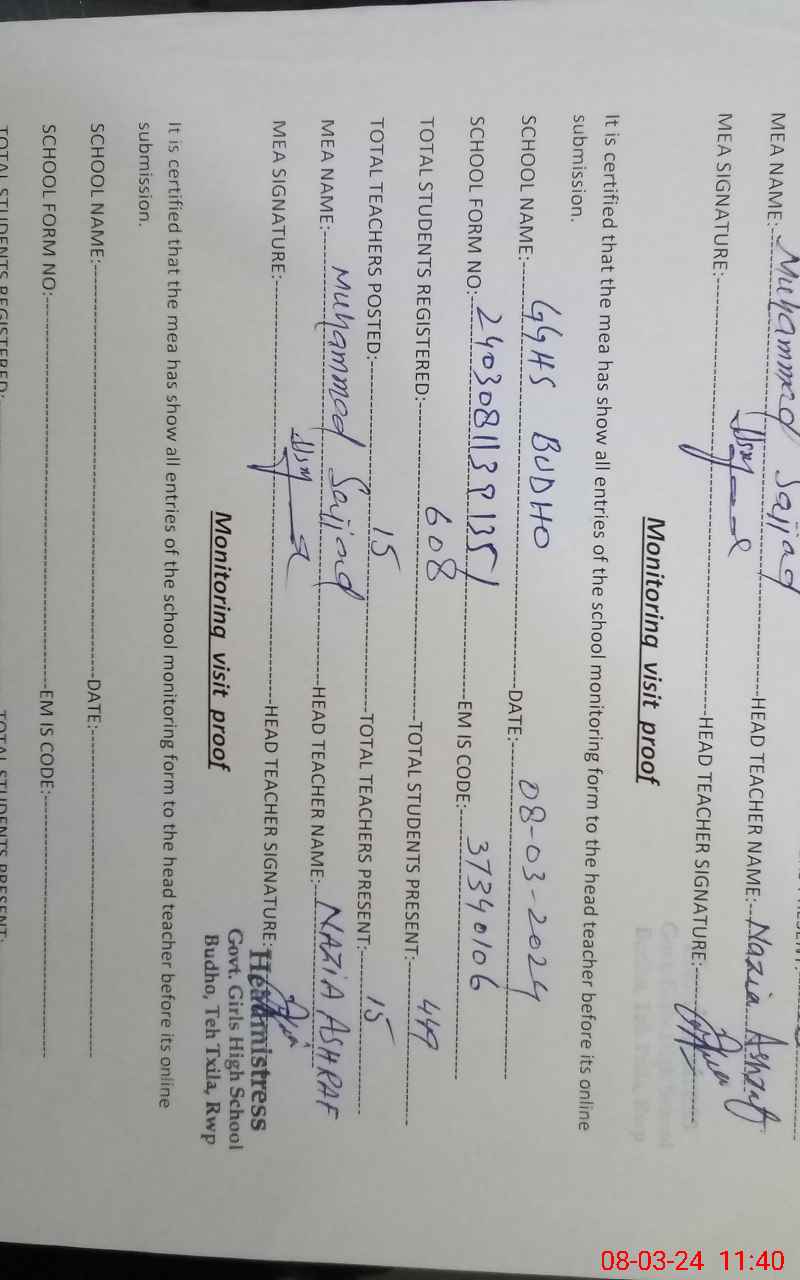 MEA NAME:- Muhammad Sajjad HEAD TEACHER NAME:- Nazia Ashraf
MEA SIGNATURE:- HEAD TEACHER SIGNATURE:-
Monitoring visit proof
It is certified that the mea has show all entries of the school monitoring form to the head teacher before its online
submission.
SCHOOL NAME:- GGHS BUDHO DATE:- 08-03-2024
SCHOOL FORM NO:- 24030811391351 EM IS CODE:- 37340106
TOTAL STUDENTS REGISTERED:- 608 TOTAL STUDENTS PRESENT:- 449
TOTAL TEACHERS POSTED:- 15 TOTAL TEACHERS PRESENT:- 15
MEA NAME:- Muhammad Sajjad HEAD TEACHER NAME:- NAZIA ASHRAF
MEA SIGNATURE:- HEAD TEACHER SIGNATURE:-
Headmistress
Govt. Girls High School
Budho, Teh Txila, Rwp
Monitoring visit proof
It is certified that the mea has show all entries of the school monitoring form to the head teacher before its online
submission.
SCHOOL NAME:- DATE:-
SCHOOL FORM NO:- EM IS CODE:-
TOTAL STUDENTS REGISTERED:- TOTAL STUDENTS PRESENT:-
08-03-24 11:40